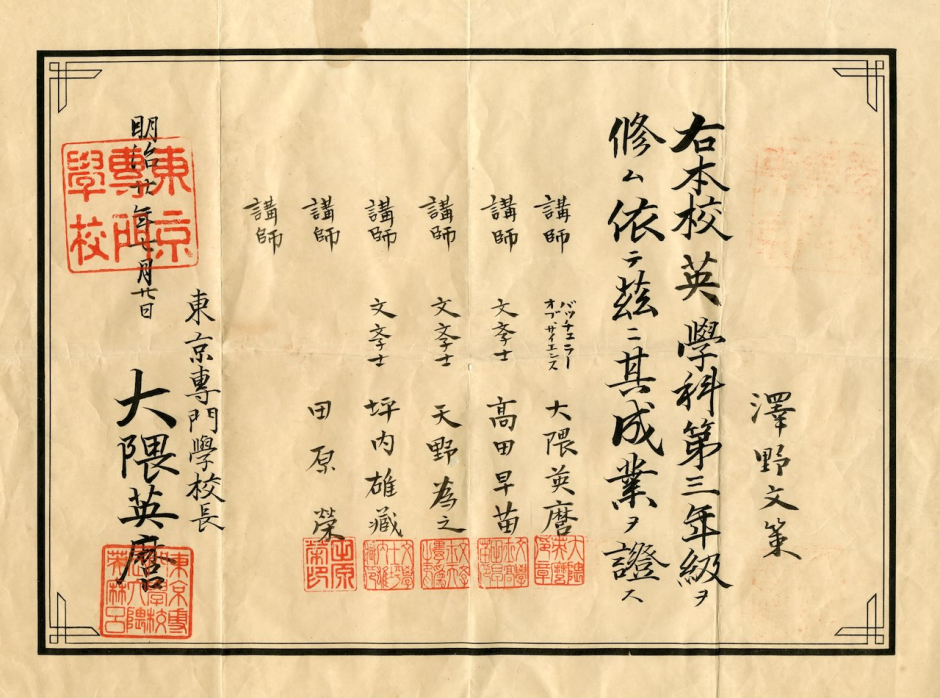 澤野文策
右本校英學科第三年級ヲ
修ム依テ茲ニ其成業ヲ證ス
講師 バッチェラー オブ、サイエンス 大隈英麿
講師 文學士 高田早苗
講師 文學士 天野為之
講師 文學士 坪内雄藏
講師 田原榮
講師
東京專門學校長
大隈英麿
明治廿年七月廿日
東京
專門
學校
田原
榮印